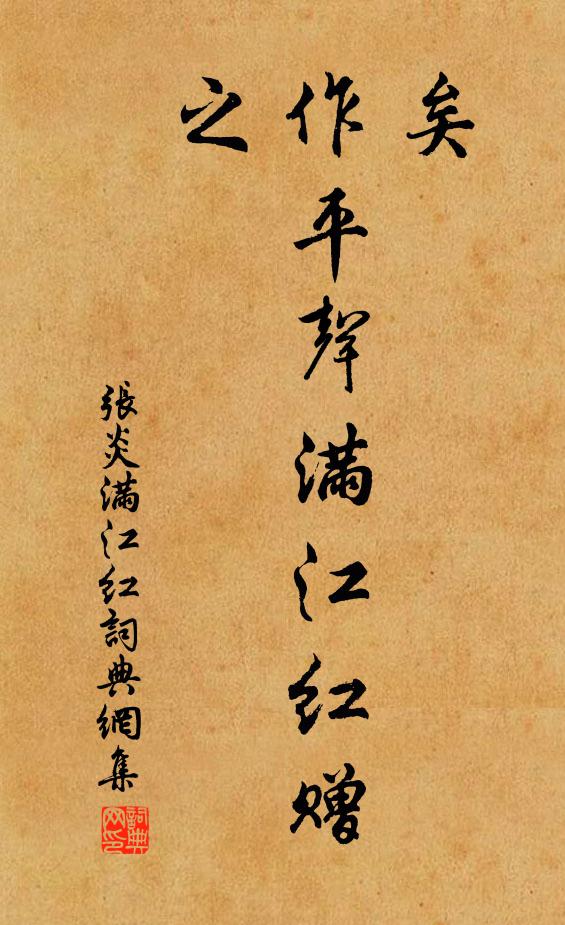 矣
作平聲满江红赠
之
張炎满江红詞典網集
詞典网印